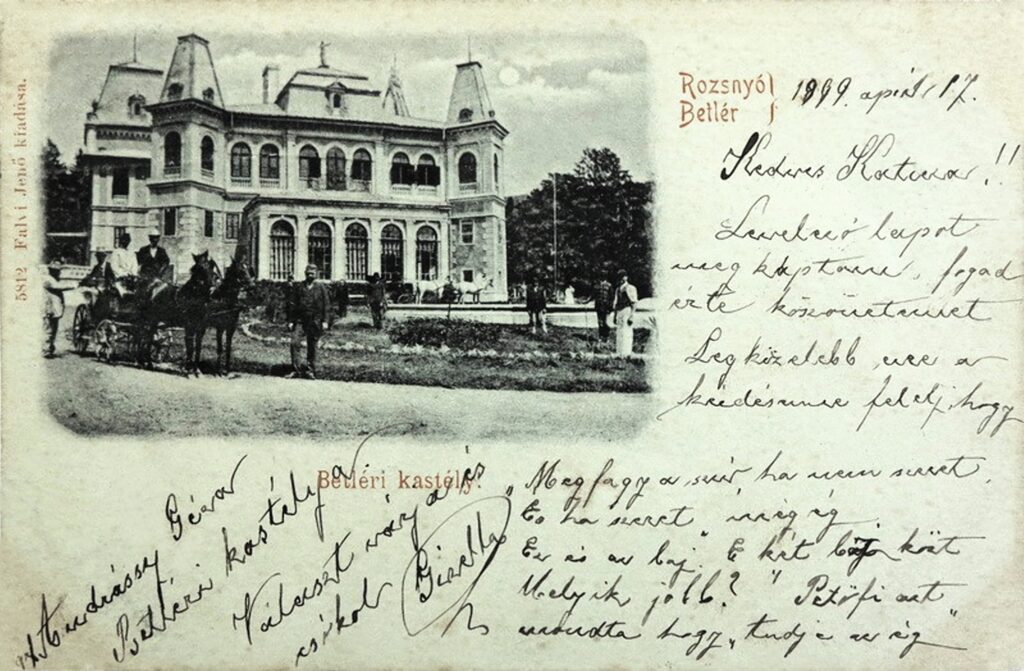 5812 Falvi Jenő kiadása.
Rozsnyó
Betlér
1899. april 17.
Kedves Katicza!!
Levelező lapot
meg kaptam, fogad
érte köszönetemet
Legközelebb, erre a
kérdésemre felelj, hogy
„Megfagy a szív ha nem szeret,
És ha szeret" megég
Ez is az baj. E két baj közt
Melyik jobb?" Petőfi azt
mondta hogy „tudja az ég"
Betléri kastély.
Andrássy Géza
Betléri kastélya.
Választ várja és
csókol Gizella